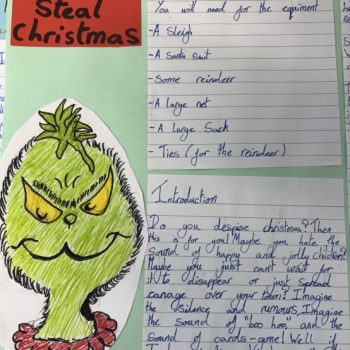 Steal
Christmas
You will need for the equiment
-A sleigh
-A Santa suit
-Some reindeer
-A large net
-A large Sack
-Ties (for the reindeer)
Introduction
Do you despise christmas? Then
this is for you! Maybe you hate the
sound of happy and jolly children!
Maybe you just can't wait for
it to disappear or just spread
canage over your town? Imagine
the silence and rumours, Imagine
the sound of "boo hoo," and the
sound of cards-gone! Well if